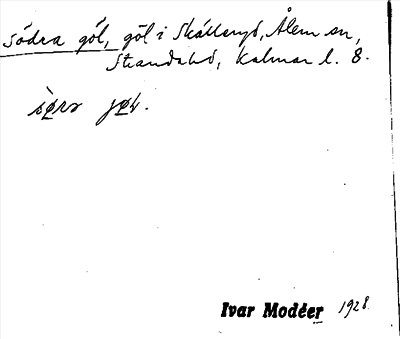 Södra göl, göl i Skälleryd, Ålem sn,
Strandabd, Kalmar l. 8.
Ivar Modéer 1928